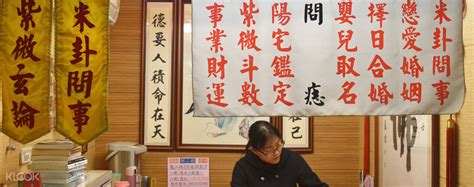 米卦問事
戀愛婚姻
擇日合婚
嬰兒取名
問
陽宅鑑定
紫微斗數
事業財運
己
德要人積命在天
米卦問事
紫微玄論
KLOOK